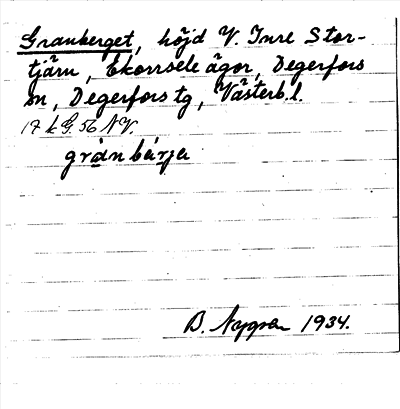 Granberget, höjd V. Inre Stor-
tjärn, Ekorrsele ägor, Degerfors
sn, Degerfors tg, Västerb.l.
17 k G. 56 NV.
gránbárja
B. Nygren 1934.